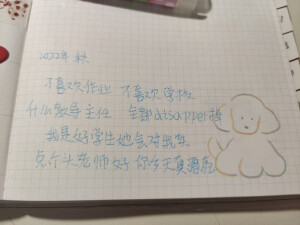 2022年 秋
不喜欢作业 不喜欢学校
什么教导主任 全部disappear掉
我是好学生她会对我笑
点个头老师好 你今天真漂亮